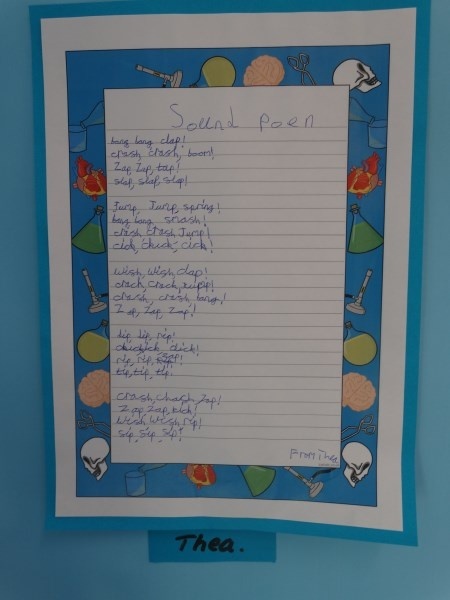 Sound poem
bang bang clap!
crash, crash, boom!
Zap Zap, tap!
slap, slap, slap!
Jump, Jump, spring!
bang bang smash!
crash crash Jump!
click, chick, cick!
Wish, Wish, clap!
crach, crach,
crash, crash, bang!
Zap, Zap, Zap!
rip!
click!
rip, rip,
tip, tip, tip!
Crash, chash, Zap!
Zap, Zap, kick!
Wesh, Wesh, rip!
Sip, Sip, Sip!
From Thea
Thea.